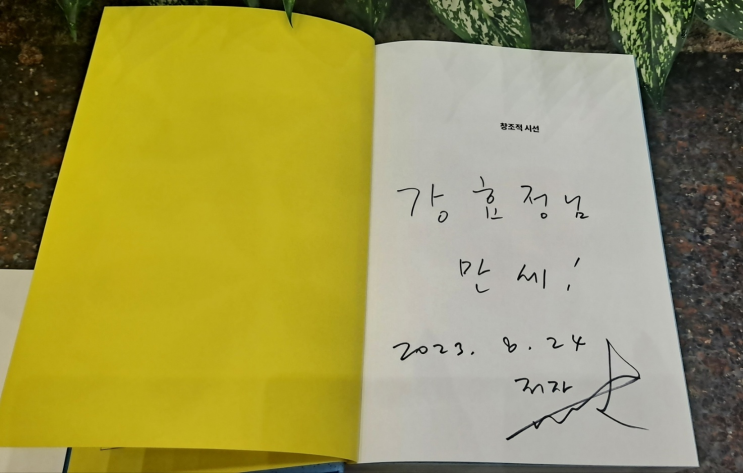 창조적 시선
강효정님
만세!
2023. 8. 24
저자